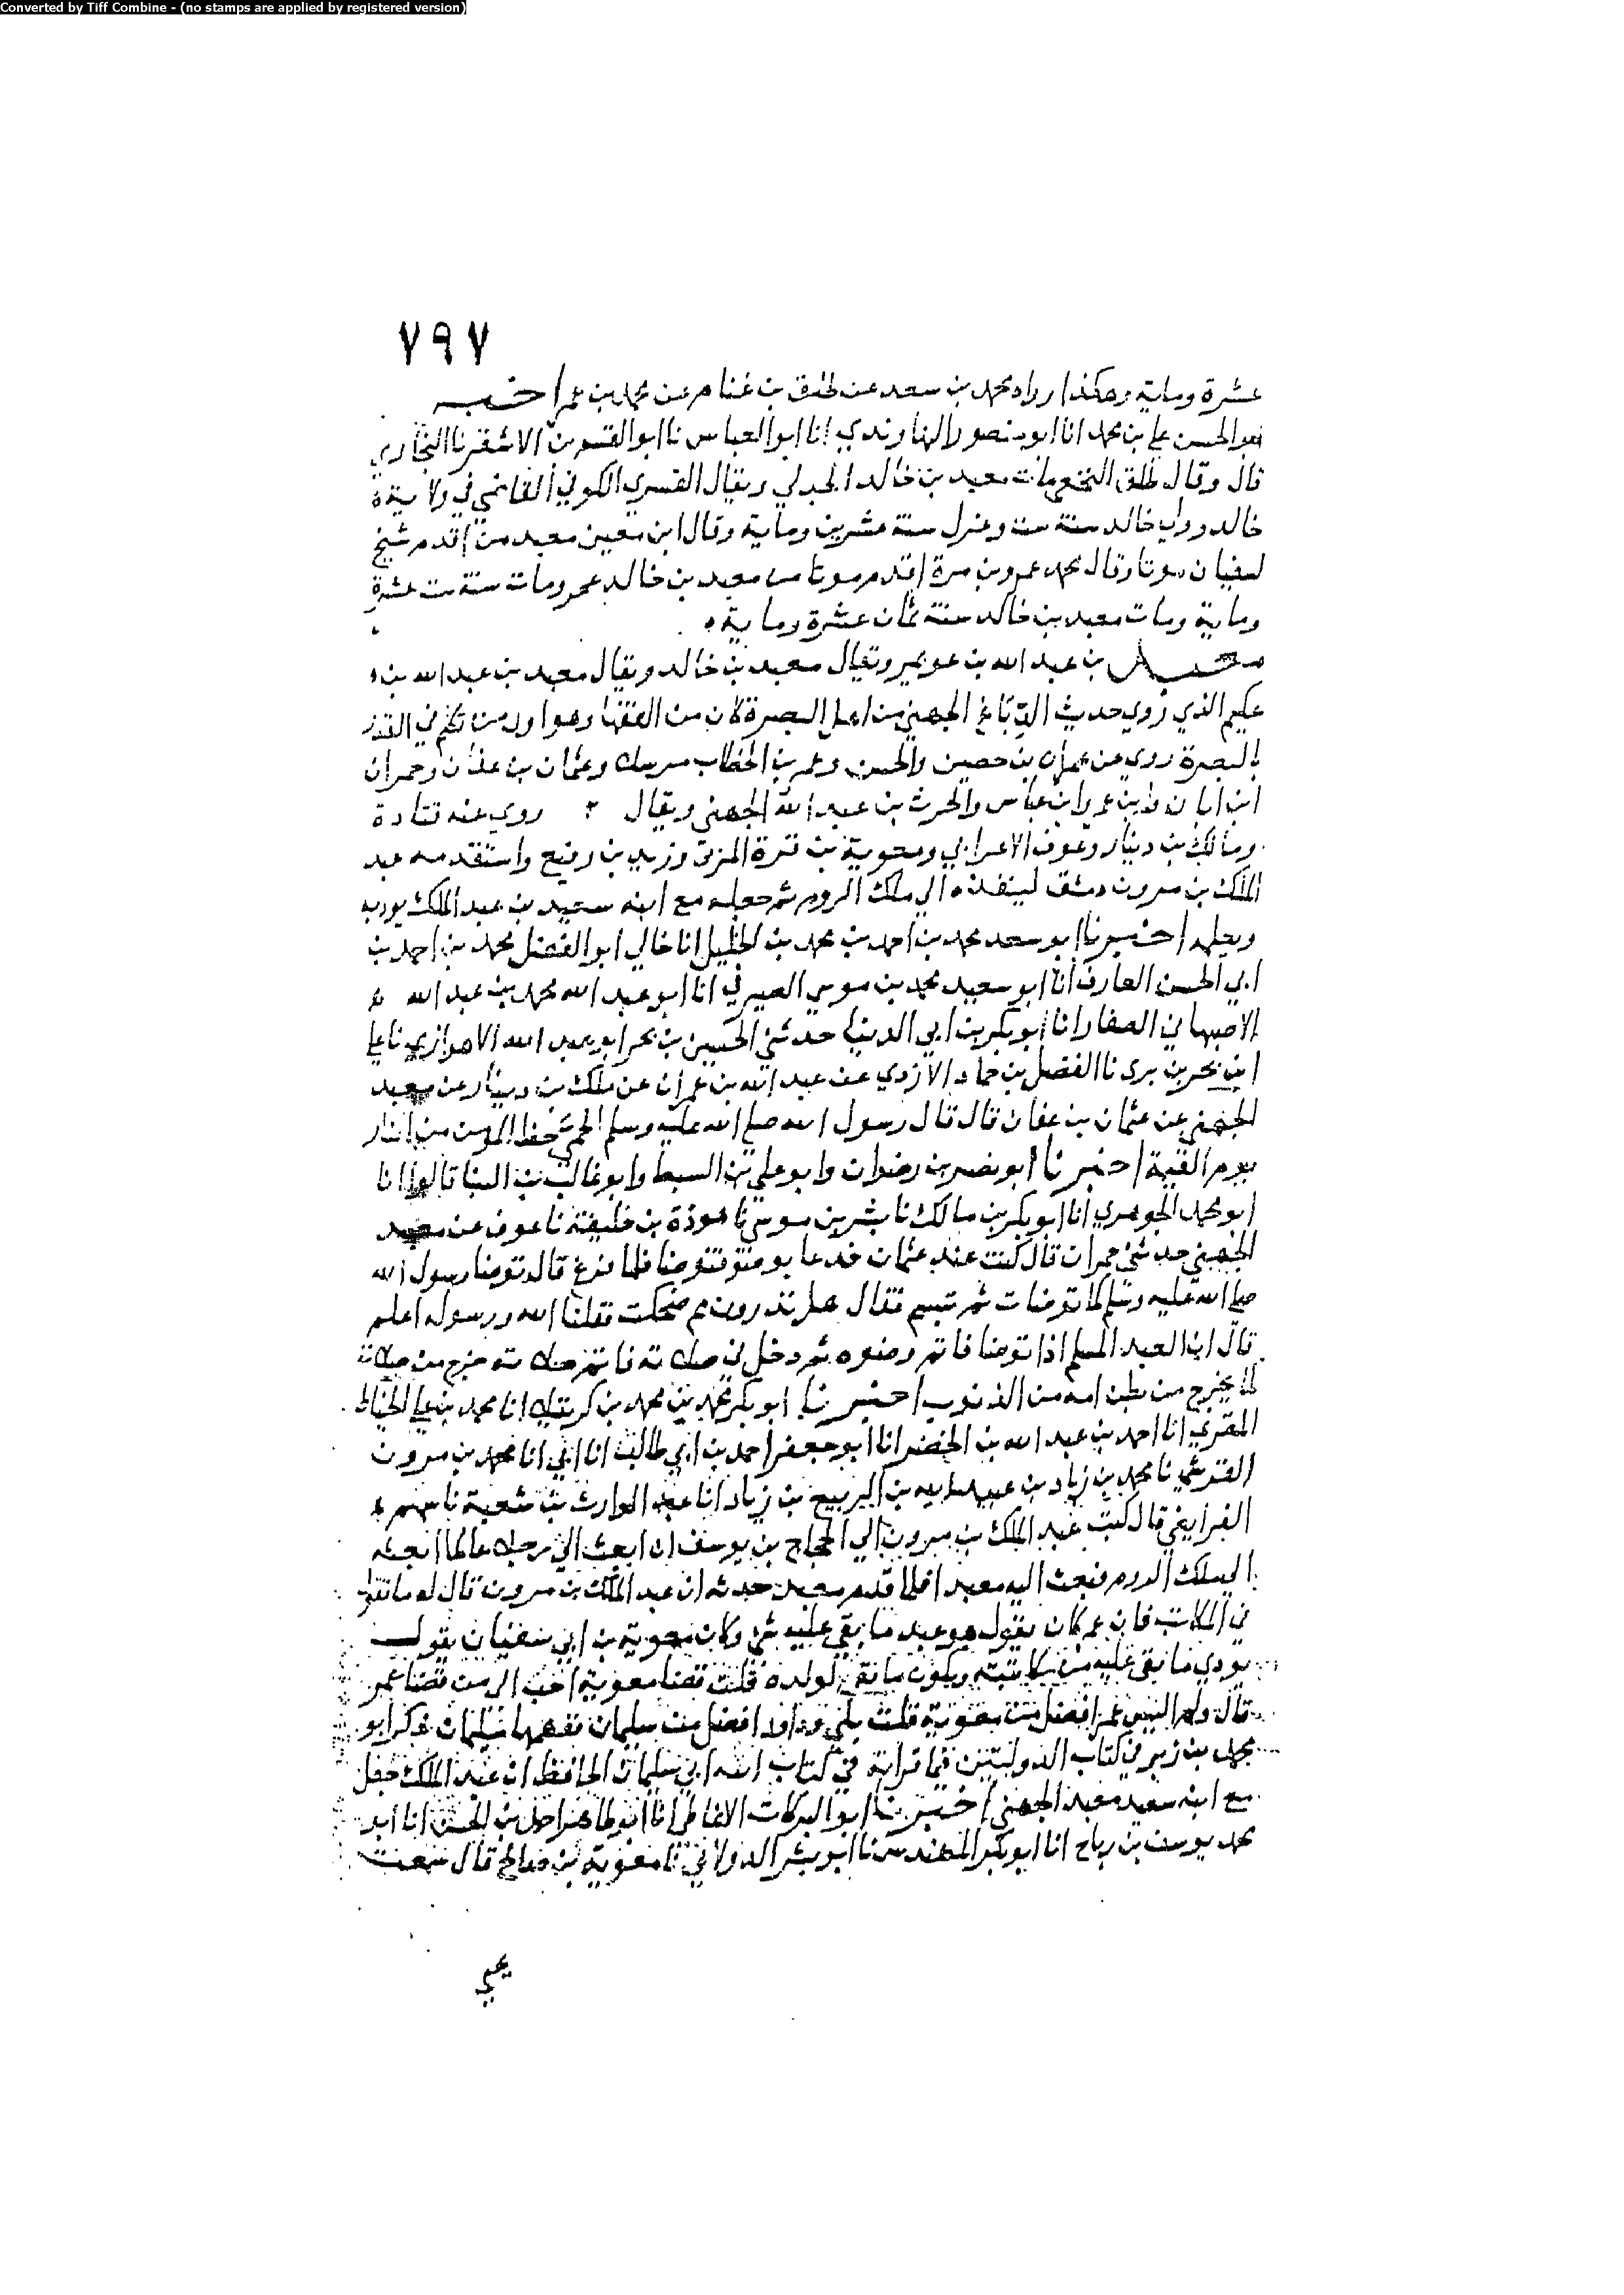 Converted by Tiff Combine - (no stamps are applied by registered version)
٧٩٧
عشرة وماية وهكذا رواه محمد بن سعد عن طلق بن غنام عن محمد بن عمر اخبـ
ابو الحسن علي بن محمد انا ابو منصور النهاوندي انا ابو العباس نا ابو القسم بن الاشقر نا البخاري
قال وقال طلق النخعي مات معبد بن خالد الجدلي ويقال القسري الكوفي القاضي في ولاية
خالد وولي خالد سنة ست وعزل سنة عشرين وماية وقال ابن معين معبد من اقدم شيخ
لسفيان موتا وقال محمد عمرو بن مرة اقدم موتا من معبد بن خالد عمرو مات سنة ست عشرة
وماية ومات معبد بن خالد سنة ثمان عشرة وماية
معبد بن عبد الله بن عويمر ويقال معبد بن خالد ويقال معبد بن عبد الله بن
عكيم الذي روى حديث الدباغ الجهني من اهل البصرة كان من الفقها وهو اول من تكلم في القدر
بالبصرة روى عن عمران بن حصين والحسن وعمر بن الخطاب مرسل وعثمان بن عفان وحمران
ابن ابان وابن عمر وابن عباس والحرث بن عبد الله الجهني ويقال روى عنه قتادة
ومالك بن دينار وعوف الاعرابي ومعوية بن قرة المزني وزيد بن رفيع واستقدمه عبد
الملك بن مرون دمشق لينفذه الى ملك الروم ثم جعله مع ابنه سعيد بن عبد الملك يودبه
ويعلمه اخبرنا ابو سعد محمد بن احمد بن محمد بن الخليل انا خالي ابو الفضل محمد بن احمد بن
ابي الحسن العارف انا ابو سعيد محمد بن موسى الصيرفي انا ابو عبد الله محمد بن عبد الله
الاصبهاني الصفار انا ابو بكر بن ابي الدنيا حدثني الحسين بن بحر ابو عبد الله الاهوازي نا علي
ابن بحر بن بري نا الفضل بن حماد الازدي عن عبد الله بن عمران عن ملك بن دينار عن معبد
الجهني عن عثمان بن عفان قال قال رسول الله صلى الله عليه وسلم الحمى حظ المومن من النار
يوم القيمة اخبرنا ابو نصر بن رضوان وابو علي بن السبط وابو غالب بن البنا قالوا انا
ابو محمد الجوهري انا ابو بكر بن مالك نا بشر بن موسى نا هوذة بن خليفة نا عوف عن معبد
الجهني حدثني حمران قال كنت عند عثمان فدعا بوضو فتوضا فلما فرغ قال توضا رسول الله
صلى الله عليه وسلم كما توضات ثم تبسم فقال هل تدرون مم ضحكت فقلنا الله ورسوله اعلم
قال ان العبد المسلم اذا توضا فاتم وضوه ثم دخل في صلاته فاتم صلاته خرج من صلاته
كما يخرج من بطن امه من الذنوب اخبرنا ابو بكر محمد بن محمد بن كرتيلا انا محمد بن علي الخياط
المقري انا احمد بن عبد الله بن الخضر انا ابو جعفر احمد بن ابي طالب انا ابي انا محمد بن مرون
القرشي نا محمد بن زياد بن عبيد الله بن الربيع بن زياد انا عبد الوارث بن شعبة نا سهم
الفرايضي قال كتب عبد الملك بن مرون الى الحجاج بن يوسف ان ابعث الي رجلا عالما ابعثه
الى ملك الروم فبعث اليه معبدا فلما قدم معبد حدثه ان عبد الملك بن مرون قال له ما تقول
في المكاتب فان عمر كان يقول هو عبد ما بقي عليه شي وكان معوية بن ابي سفيان يقول
يودي ما بقي عليه من مكاتبته ويكون ما بقي لولده قلت قضا معوية احب الي من قضا عمر
قال ولم اليس عمر افضل من معوية قلت بلى وداود افضل من سليمان ففهمها سليمان ذكر ابو
محمد بن زبر في كتاب الدولتين فيما قراته في كتاب ابنه ابي سليمان الحافظ ان عبد الملك جعل
مع ابنه سعيد معبد الجهني اخبرنا ابو البركات الانماطي انا ابو طاهر احمد بن الحسن انا ابو
محمد يوسف بن رباح انا ابو بكر المهندس نا ابو بشر الدولابي نا معوية بن صالح قال سمعت
يحيى